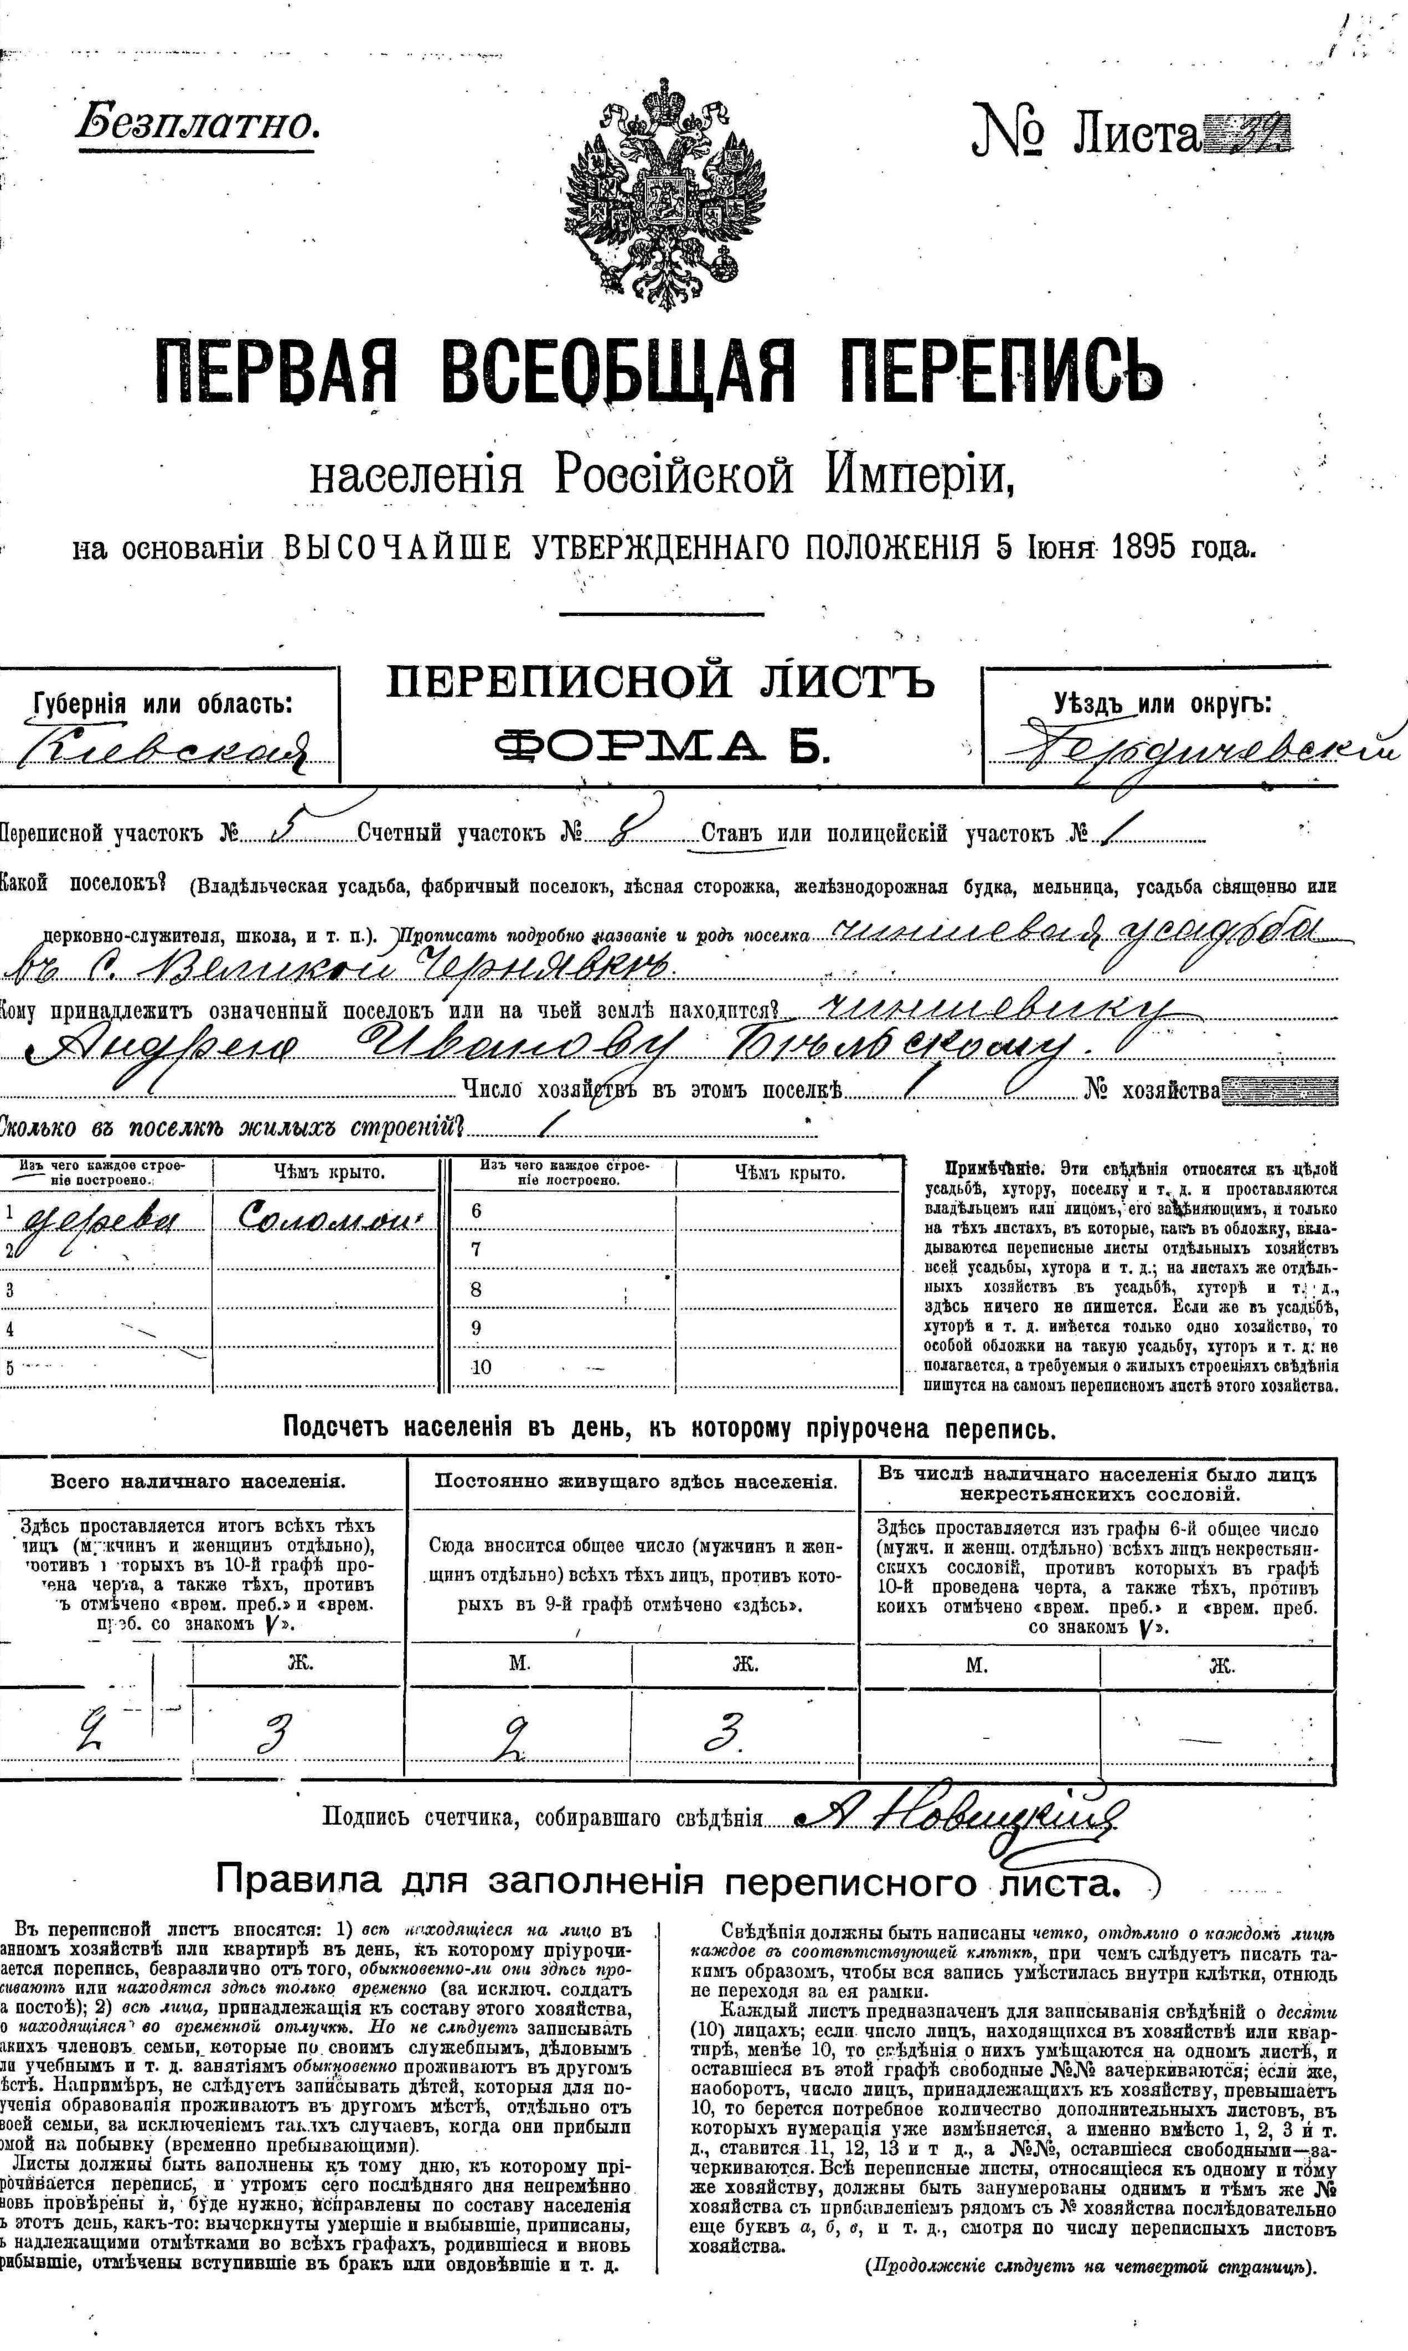 Безплатно.
№ Листа 39
ПЕРВАЯ ВСЕОБЩАЯ ПЕРЕПИСЬ
населенія Россійской Имперіи,
на основаніи ВЫСОЧАЙШЕ УТВЕРЖДЕННАГО ПОЛОЖЕНІЯ 5 Іюня 1895 года.
ПЕРЕПИСНОЙ ЛИСТЪ
ФОРМА Б.
Губернія или область:
Кіевская
Уѣздъ или округъ:
Бердичевскій
Переписной участокъ № 5 Счетный участокъ № 8 Станъ или полицейскій участокъ № 1
Какой поселокъ? (Владѣльческая усадьба, фабричный поселокъ, лѣсная сторожка, желѣзнодорожная будка, мельница, усадьба священно или
церковно-служителя, школа, и т. п.). Прописать подробно названіе и родъ поселка чиншевая усадьба
въ с. Великой Чернявкѣ.
Кому принадлежитъ означенный поселокъ или на чьей землѣ находится? чиншевику
Андрею Иванову Бѣльскому.
Число хозяйствъ въ этомъ поселкѣ 1 № хозяйства
Сколько въ поселкѣ жилыхъ строеній? 1
Изъ чего каждое строе-
ніе построено.
Чѣмъ крыто.
Изъ чего каждое строе-
ніе построено.
Чѣмъ крыто.
1 дерева Соломой 6
2 7
3 8
4 9
5 10
Примѣчаніе. Эти свѣдѣнія относятся къ цѣлой
усадьбѣ, хутору, поселку и т. д. и проставляются
владѣльцемъ или лицомъ, его замѣняющимъ, и только
на тѣхъ листахъ, въ которые, какъ въ обложку, вкла-
дываются переписные листы отдѣльныхъ хозяйствъ
всей усадьбы, хутора и т. д.; на листахъ же отдѣль-
ныхъ хозяйствъ въ усадьбѣ, хуторѣ и т. д.,
здѣсь ничего не пишется. Если же въ усадьбѣ,
хуторѣ и т. д. имѣется только одно хозяйство, то
особой обложки на такую усадьбу, хуторъ и т. д. не
полагается, а требуемыя о жилыхъ строеніяхъ свѣдѣнія
пишутся на самомъ переписномъ листѣ этого хозяйства.
Подсчетъ населенія въ день, къ которому пріурочена перепись.
Всего наличнаго населенія.
Здѣсь проставляется итогъ всѣхъ тѣхъ
лицъ (мужчинъ и женщинъ отдѣльно),
противъ которыхъ въ 10-й графѣ про-
ена черта, а также тѣхъ, противъ
ъ отмѣчено «врем. преб.» и «врем.
преб. со знакомъ V».
Постоянно живущаго здѣсь населенія.
Сюда вносится общее число (мужчинъ и жен-
щинъ отдѣльно) всѣхъ тѣхъ лицъ, противъ кото-
рыхъ въ 9-й графѣ отмѣчено «здѣсь».
Въ числѣ наличнаго населенія было лицъ
некрестьянскихъ сословій.
Здѣсь проставляется изъ графы 6-й общее число
(мужч. и женщ. отдѣльно) всѣхъ лицъ некрестьян-
скихъ сословій, противъ которыхъ въ графѣ
10-й проведена черта, а также тѣхъ, противъ
коихъ отмѣчено «врем. преб.» и «врем. преб.
со знакомъ V».
Ж. М. Ж. М. Ж.
2 3 2 3. - —
Подпись счетчика, собиравшаго свѣдѣнія А Новицкій
Правила для заполненія переписного листа.
Въ переписной листъ вносятся: 1) всѣ находящіеся на лицо въ
анномъ хозяйствѣ или квартирѣ въ день, къ которому пріурочи-
ается перепись, безразлично отъ того, обыкновенно-ли они здѣсь про-
сиваютъ или находятся здѣсь только временно (за исключ. солдатъ
а постоѣ); 2) всѣ лица, принадлежащія къ составу этого хозяйства,
о находящіяся во временной отлучкѣ. Но не слѣдуетъ записывать
акихъ членовъ семьи, которые по своимъ служебнымъ, дѣловымъ
ли учебнымъ и т. д. занятіямъ обыкновенно проживаютъ въ другомъ
ѣстѣ. Напримѣръ, не слѣдуетъ записывать дѣтей, которыя для по-
ученія образованія проживаютъ въ другомъ мѣстѣ, отдѣльно отъ
воей семьи, за исключеніемъ такихъ случаевъ, когда они прибыли
омой на побывку (временно пребывающими).
Листы должны быть заполнены къ тому дню, къ которому прі-
рочивается перепись, и утромъ сего послѣдняго дня непремѣнно
новь провѣрены и, буде нужно, исправлены по составу населенія
ъ этотъ день, какъ-то: вычеркнуты умершіе и выбывшіе, приписаны,
ъ надлежащими отмѣтками во всѣхъ графахъ, родившіеся и вновь
рибывшіе, отмѣчены вступившіе въ бракъ или овдовѣвшіе и т. д.
Свѣдѣнія должны быть написаны четко, отдѣльно о каждомъ лицѣ
каждое въ соотвѣтствующей клѣткѣ, при чемъ слѣдуетъ писать та-
кимъ образомъ, чтобы вся запись умѣстилась внутри клѣтки, отнюдь
не переходя за ея рамки.
Каждый листъ предназначенъ для записыванія свѣдѣній о десяти
(10) лицахъ; если число лицъ, находящихся въ хозяйствѣ или квар-
тирѣ, менѣе 10, то свѣдѣнія о нихъ умѣщаются на одномъ листѣ, и
оставшіеся въ этой графѣ свободные №№ зачеркиваются; если же,
наоборотъ, число лицъ, принадлежащихъ къ хозяйству, превышаетъ
10, то берется потребное количество дополнительныхъ листовъ, въ
которыхъ нумерація уже измѣняется, а именно вмѣсто 1, 2, 3 и т.
д., ставится 11, 12, 13 и т д., а №№, оставшіеся свободными—за-
черкиваются. Всѣ переписные листы, относящіеся къ одному и тому
же хозяйству, должны быть занумерованы однимъ и тѣмъ же №
хозяйства съ прибавленіемъ рядомъ съ № хозяйства послѣдовательно
еще буквъ а, б, в, и т. д., смотря по числу переписныхъ листовъ
хозяйства.
(Продолженіе слѣдуетъ на четвертой страницѣ).